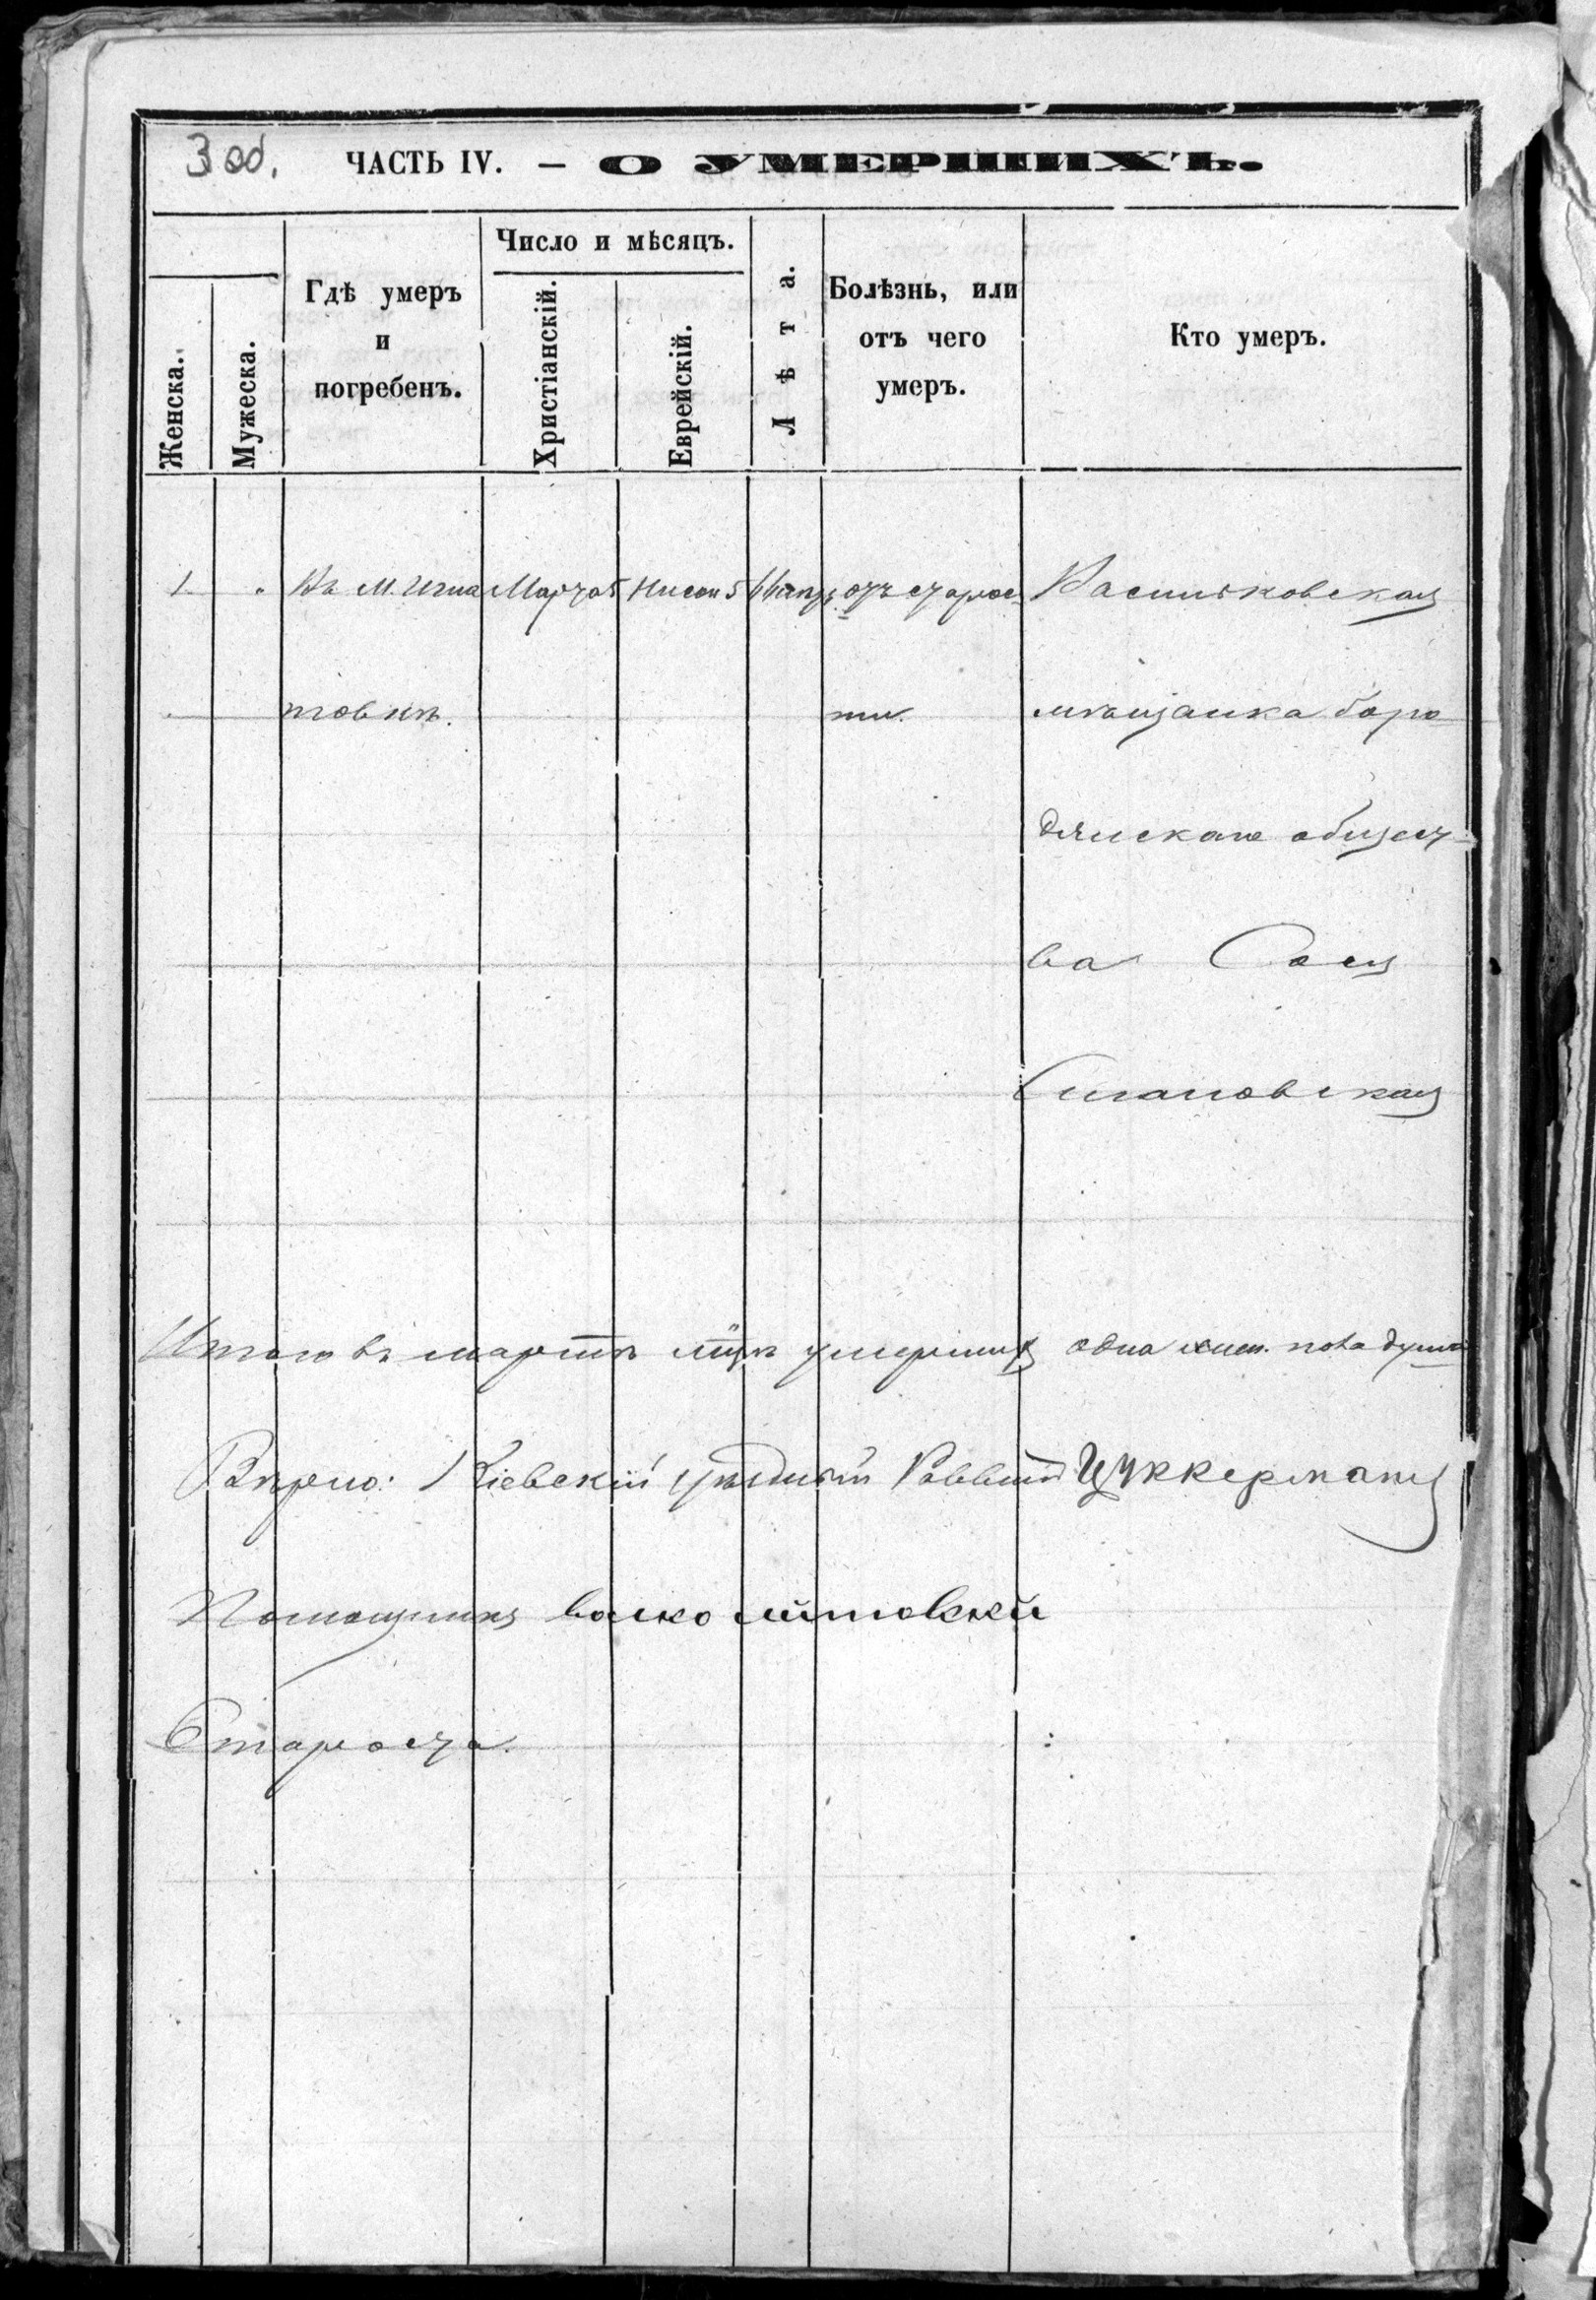 3 об. ЧАСТЬ IV. — О УМЕРШИХЪ.
Женска.
Мужеска.
Гдѣ умеръ
и
погребенъ.
Число и мѣсяцъ.
Христіанскій.
Еврейскій.
Лѣта.
Болѣзнь, или
отъ чего
умеръ.
Кто умеръ.
1. " Въ М. Игна Марта 5 Нисон 5 отъ старос Васильковская
товкѣ. ти. мѣщанка боро
дянскаго общест
ва
Итого въ мартѣ мцѣ умершихъ одна жен. пола душа
Вѣрно: Кіевскій уѣздный Раввинъ Цуккерманъ
Помощникъ
Староста.